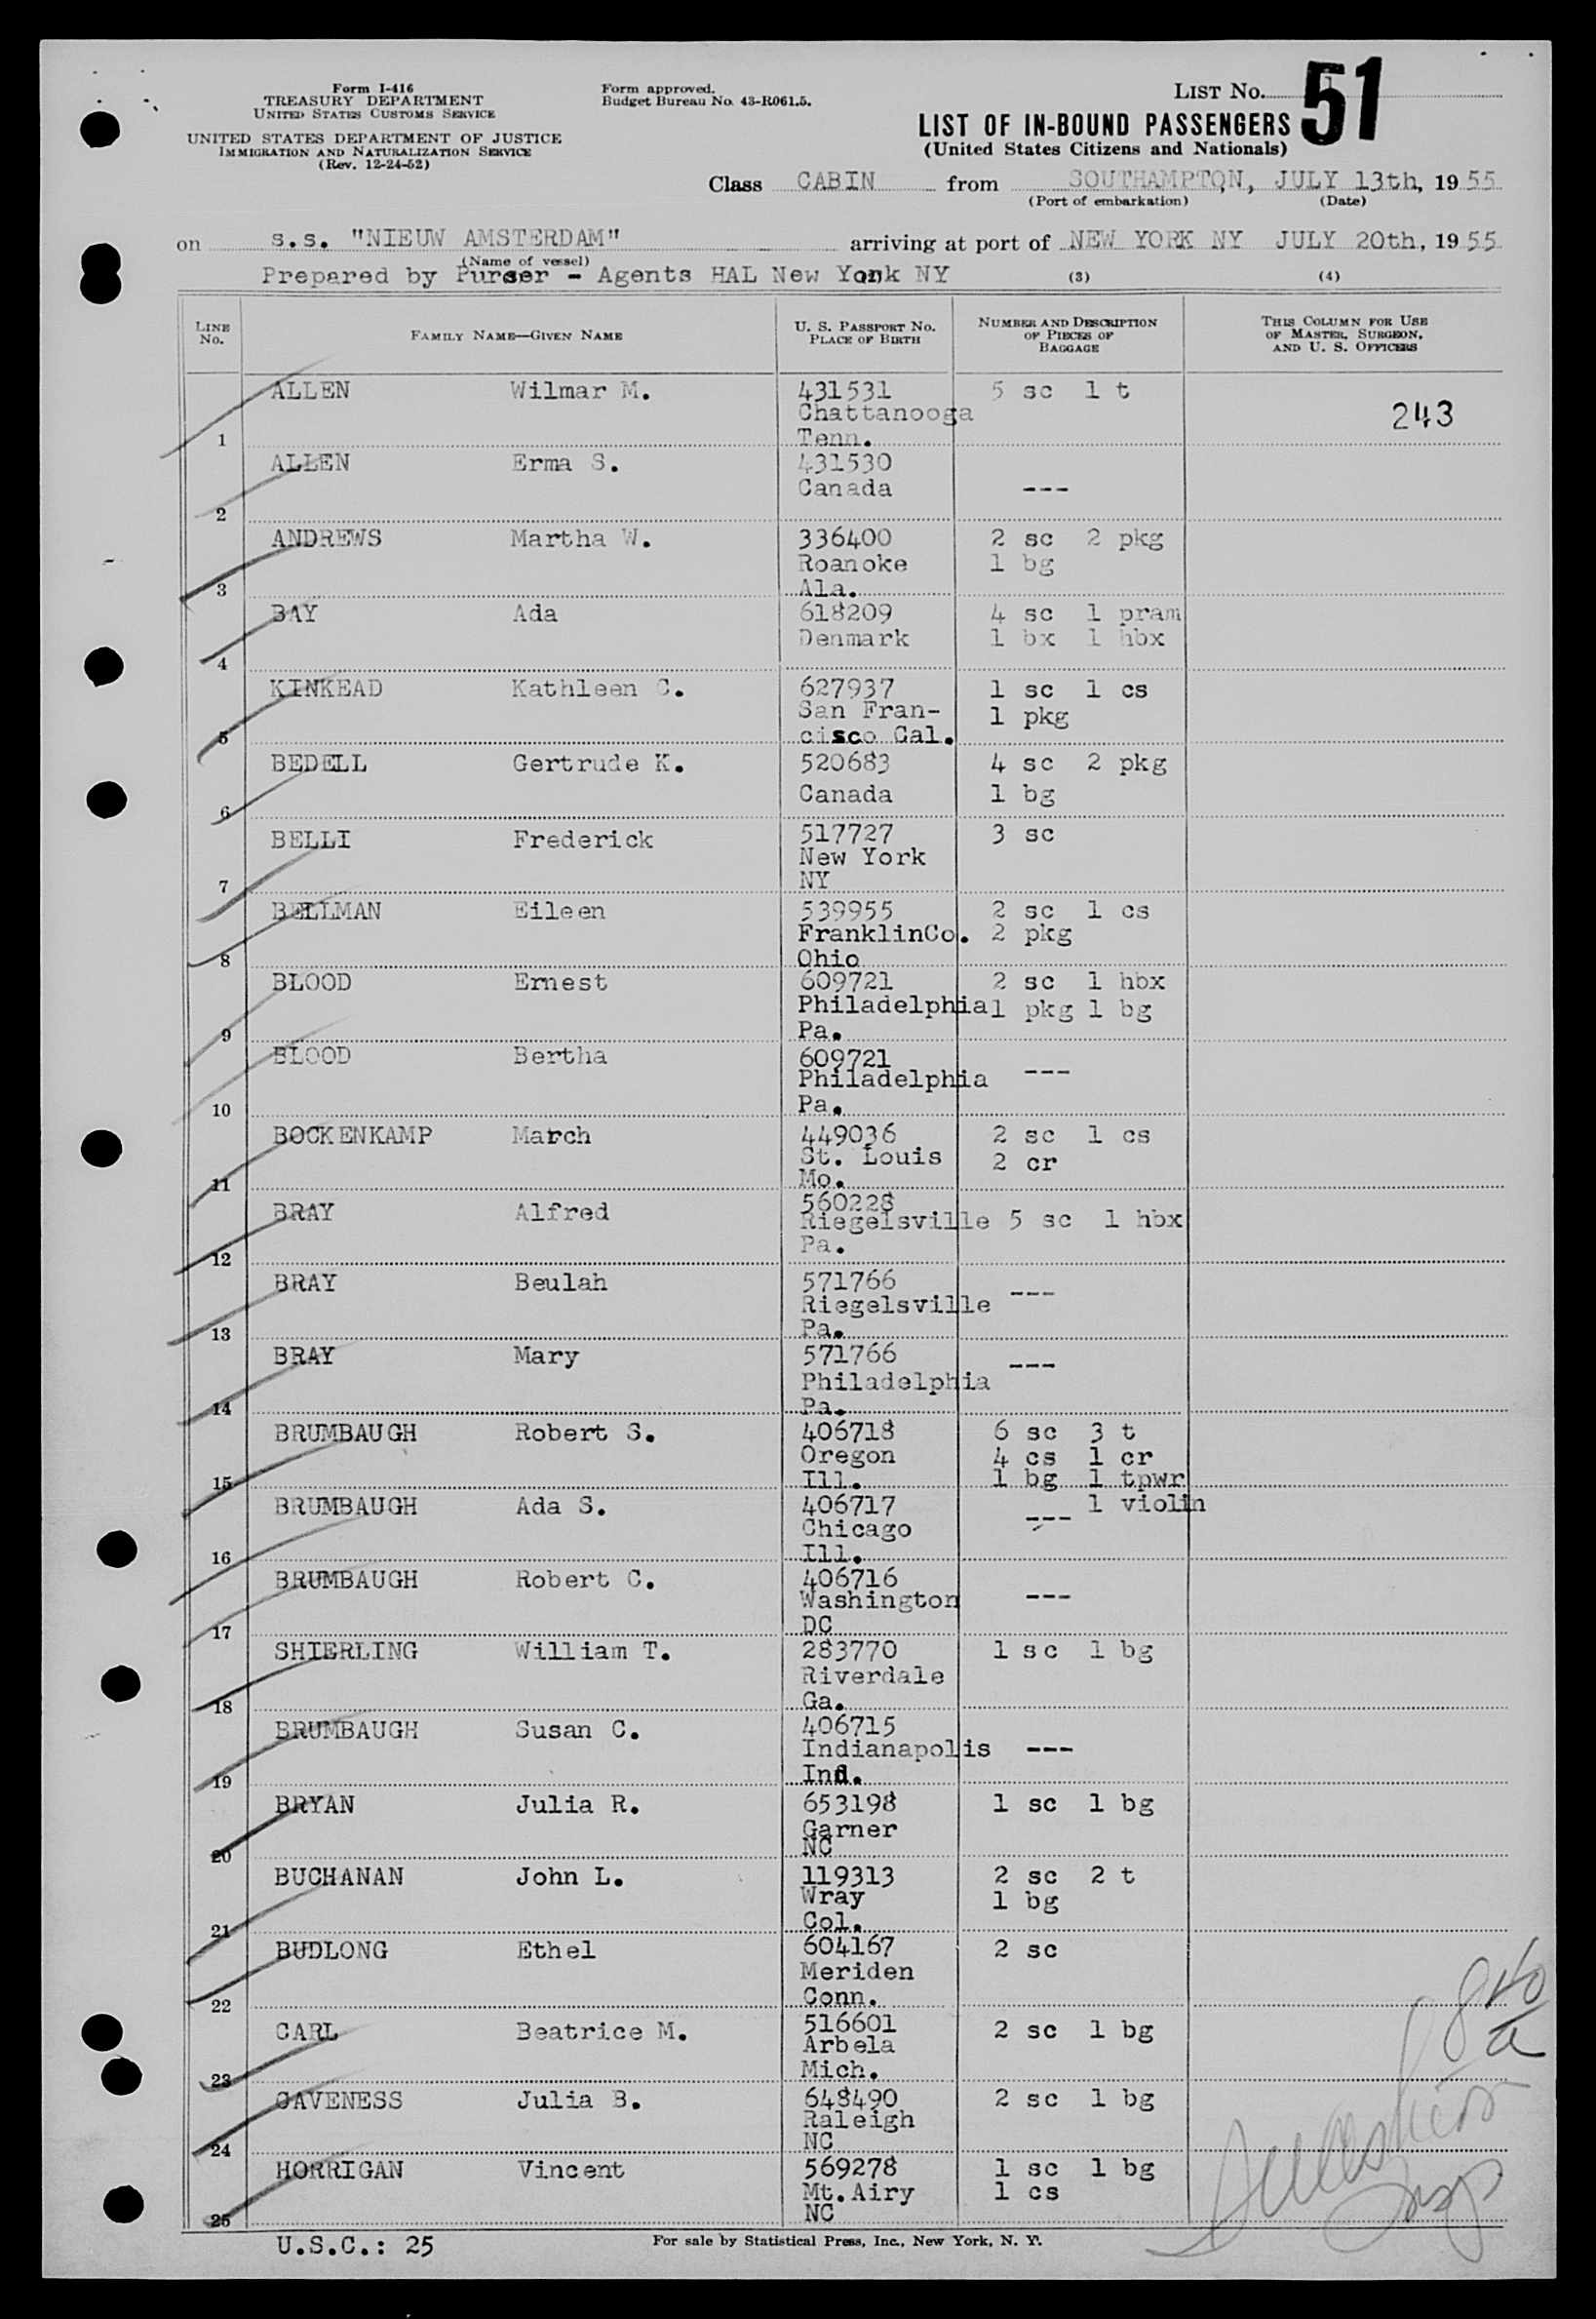 Form I-416
TREASURY DEPARTMENT
UNITED STATES CUSTOMS SERVICE
UNITED STATES DEPARTMENT OF JUSTICE
IMMIGRATION AND NATURALIZATION SERVICE
(Rev. 12-24-52)
Form approved.
Budget Bureau No. 43-R061.5.
LIST No. 51
LIST OF IN-BOUND PASSENGERS
(United States Citizens and Nationals)
Class CABIN from SOUTHAMPTON, JULY 13th, 1955
(Port of embarkation) (Date)
on s.s. "NIEUW AMSTERDAM" arriving at port of NEW YORK NY JULY 20th, 1955
(Name of vessel)
Prepared by Purser - Agents HAL New York NY (3) (4)
LINE No. FAMILY NAME—GIVEN NAME U. S. PASSPORT No. PLACE OF BIRTH NUMBER AND DESCRIPTION OF PIECES OF BAGGAGE THIS COLUMN FOR USE OF MASTER, SURGEON, AND U. S. OFFICERS
ALLEN Wilmar M. 431531 5 sc 1 t
Chattanooga 243
1 Tenn.
ALLEN Erma S. 431530
Canada ---
2
ANDREWS Martha W. 336400 2 sc 2 pkg
Roanoke 1 bg
3 Ala.
BAY Ada 618209 4 sc 1 pram
Denmark 1 bx 1 hbx
4
KINKEAD Kathleen C. 627937 1 sc 1 cs
San Fran- 1 pkg
5 cisco Cal.
BEDELL Gertrude K. 520683 4 sc 2 pkg
Canada 1 bg
6
BELLI Frederick 517727 3 sc
New York
7 NY
BELLMAN Eileen 539955 2 sc 1 cs
FranklinCo. 2 pkg
8 Ohio
BLOOD Ernest 609721 2 sc 1 hbx
Philadelphia 1 pkg 1 bg
9 Pa.
BLOOD Bertha 609721 ---
Philadelphia
10 Pa.
BOCKENKAMP March 449036 2 sc 1 cs
St. Louis 2 cr
11 Mo.
BRAY Alfred 560228
Riegelsville 5 sc 1 hbx
12 Pa.
BRAY Beulah 571766 ---
Riegelsville
13 Pa.
BRAY Mary 571766 ---
Philadelphia
14 Pa.
BRUMBAUGH Robert S. 406718 6 sc 3 t
Oregon 4 cs 1 cr
15 Ill. 1 bg 1 tpwr
BRUMBAUGH Ada S. 406717 --- 1 violin
Chicago
16 Ill.
BRUMBAUGH Robert C. 406716
Washington ---
17 DC
SHIERLING William T. 283770 1 sc 1 bg
Riverdale
18 Ga.
BRUMBAUGH Susan C. 406715
Indianapolis ---
19 Ind.
BRYAN Julia R. 653198 1 sc 1 bg
Garner
20 NC
BUCHANAN John L. 119313 2 sc 2 t
Wray 1 bg
21 Col.
BUDLONG Ethel 604167 2 sc
Meriden
22 Conn.
CARL Beatrice M. 516601 2 sc 1 bg
Arbela
23 Mich.
CAVENESS Julia B. 648490 2 sc 1 bg
Raleigh
24 NC
HORRIGAN Vincent 569278 1 sc 1 bg
Mt.Airy 1 cs
25 NC
U.S.C.: 25 For sale by Statistical Press, Inc., New York, N. Y.